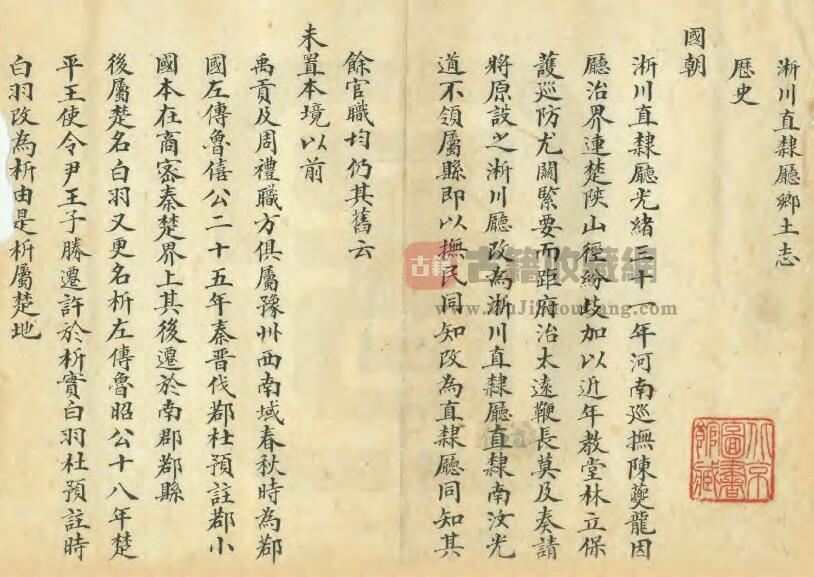 淅川直隸廳鄉土志
歷史
國朝
淅川直隸廳光緒三十一年河南巡撫陳夔龍因
廳治界連楚陝山徑紛歧加以近年教堂林立保
護巡防尤關緊要而距府治太遠鞭長莫及奏請
將原設之淅川廳改為淅川直隸廳直隸南汝光
道不領屬縣即以撫民同知改為直隸廳同知其
餘官職均仍其舊云
未置本境以前
禹貢及周禮職方俱屬豫州西南域春秋時為鄀
國左傳魯僖公二十五年秦晉伐鄀杜預註鄀小
國本在商宻秦楚界上其後遷於南郡鄀縣
後屬楚名白羽又更名析左傳魯昭公十八年楚
平王使令尹王子勝遷許於析實白羽杜預註時
白羽改為析由是析屬楚地
北京
圖書
館藏
古籍
古籍收藏網